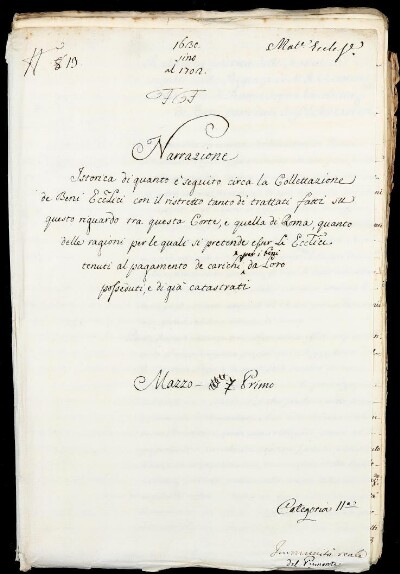 N° 19
1630.
sino
al 1702.
Mat.e Eccle.
Narrazione
Istorica di quanto è seguito circa la Collettazione
de Beni Ecclici con il ristretto tanto di trattati fatti su
questo riguardo tra questa Corte, e quella di Roma, quanto
delle ragioni per le quali si pretende esser li Ecclici
tenuti al pagamento de carichi per i beni da Loro
posseduti, e di già catastrati
Mazzo 7 Primo
Categoria 11a
Immunità reale
del Piemonte